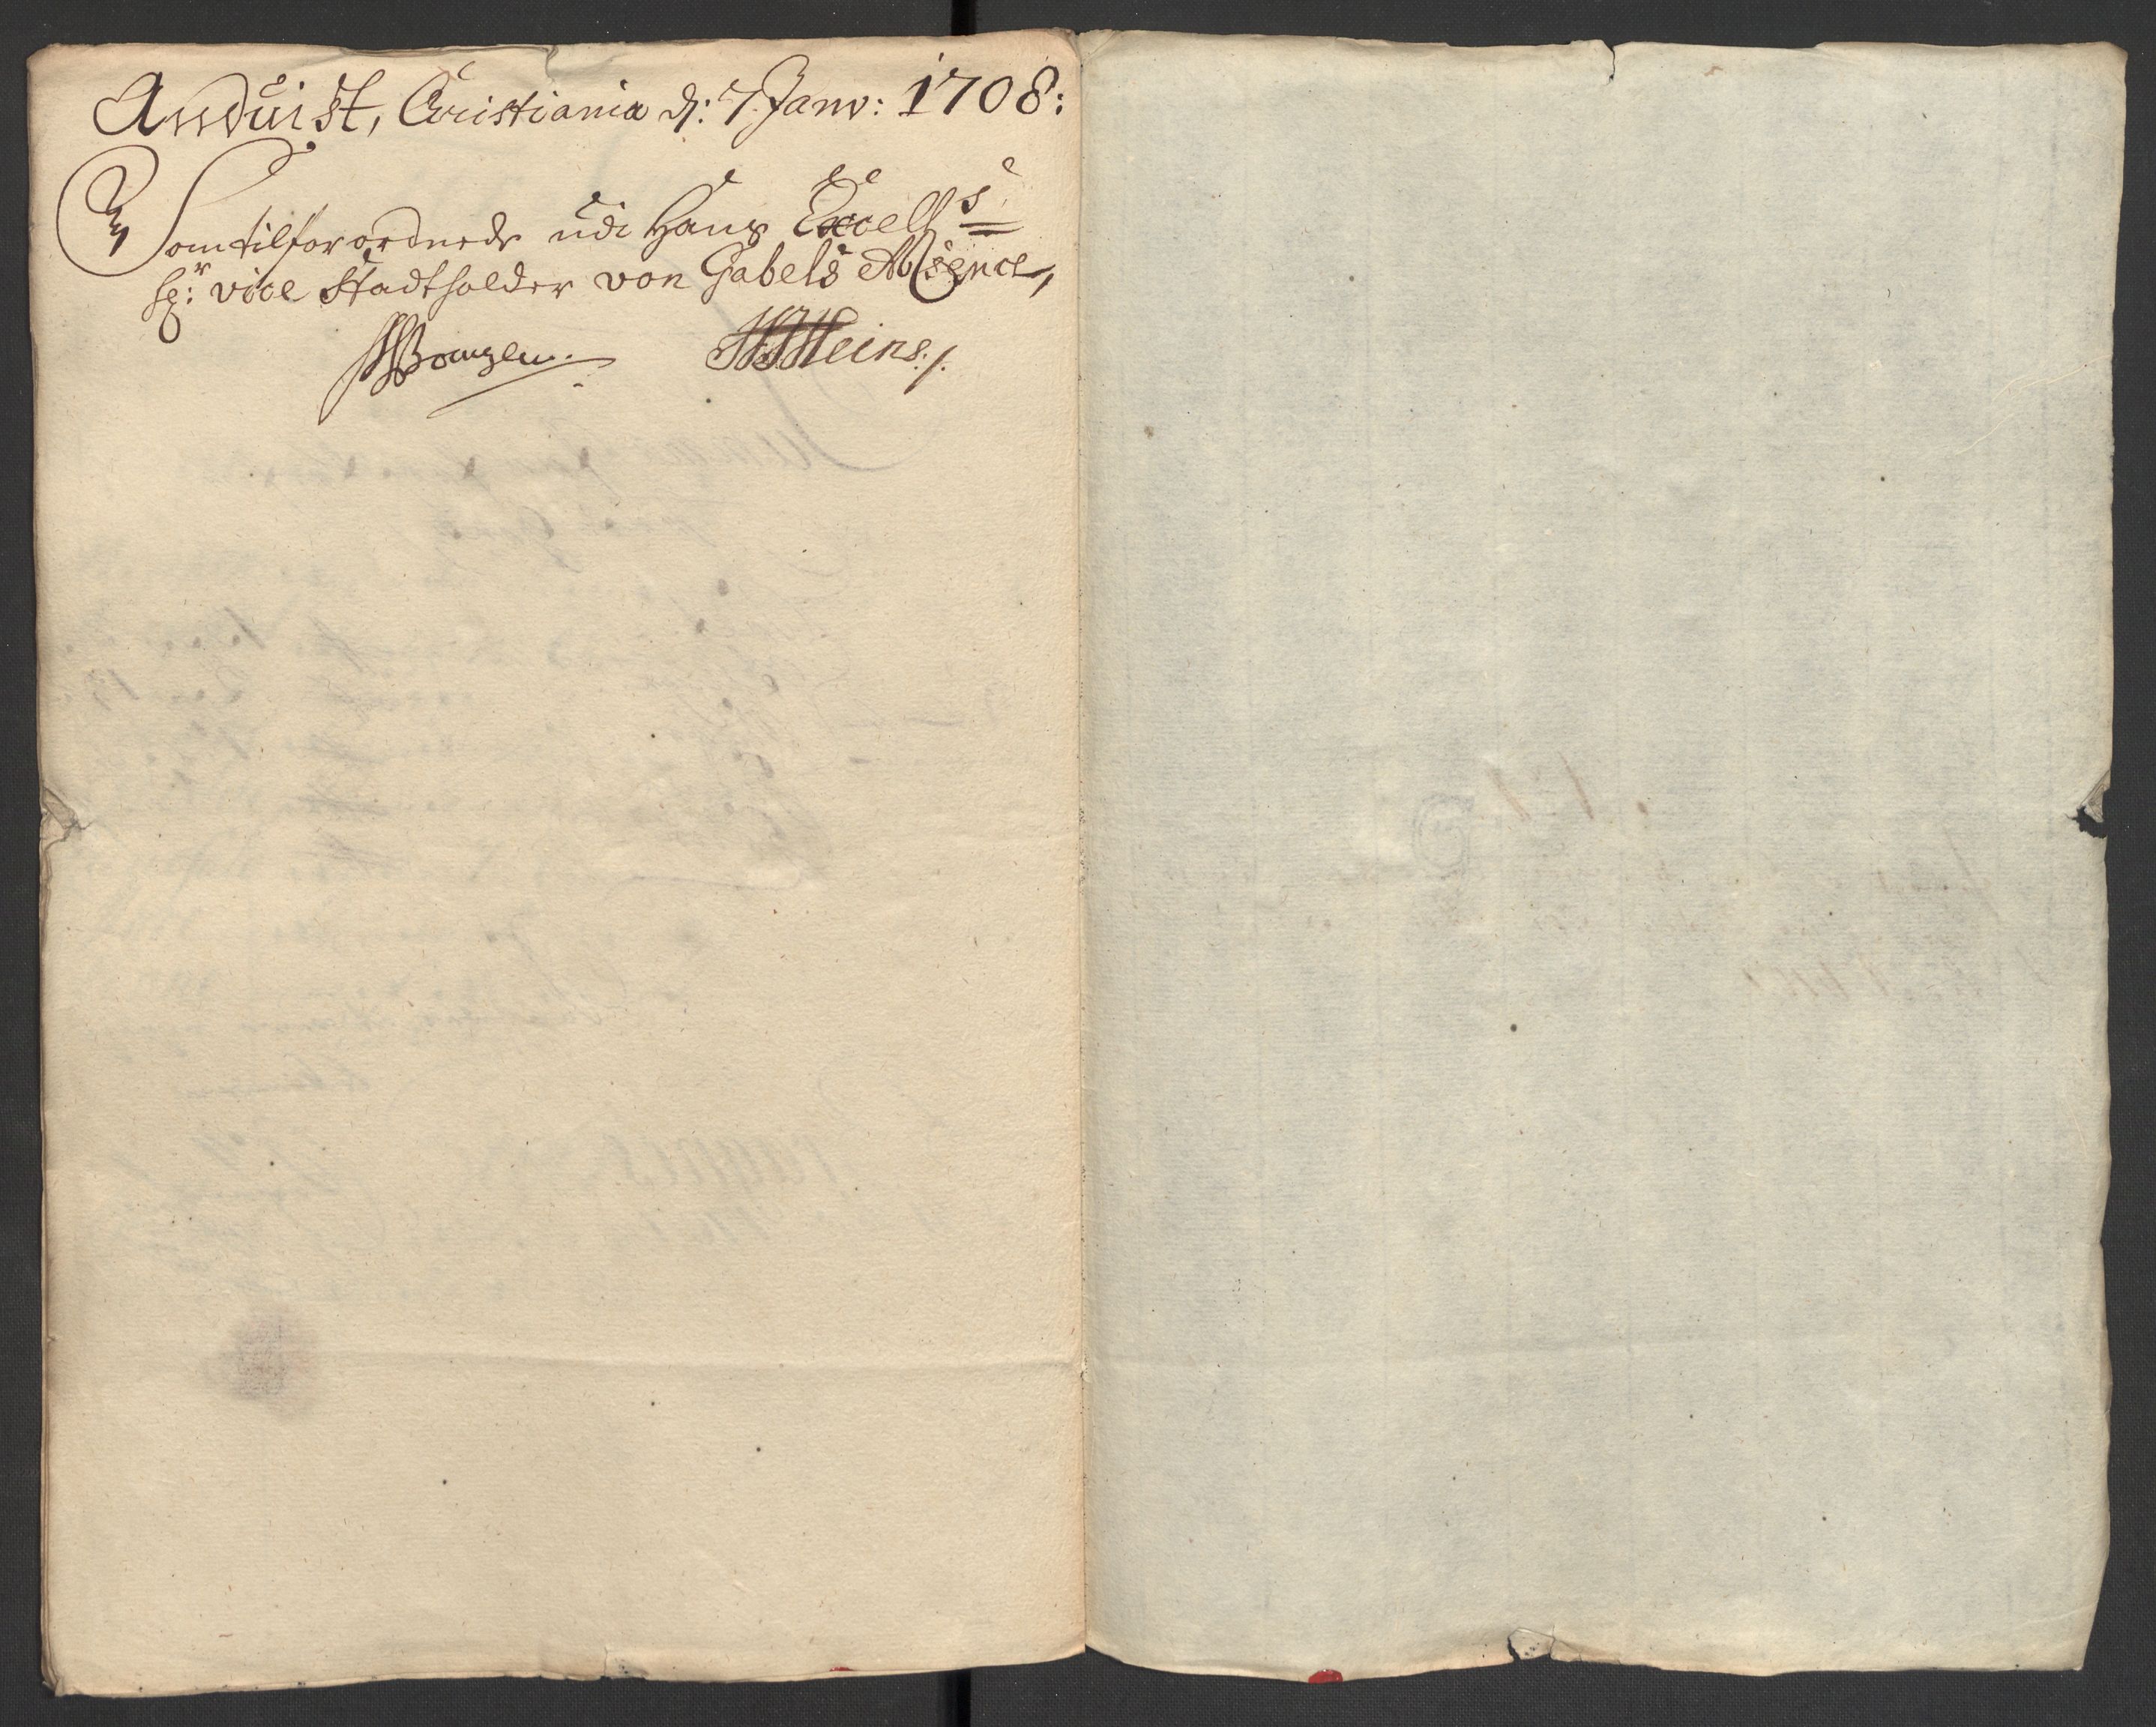 Andvist, Christiania d: 7 Janv: 1708:
Som tilforordnede udi Hans Excells
hr: vice Stadtholder von Gabels Absence,
HHHeins./.